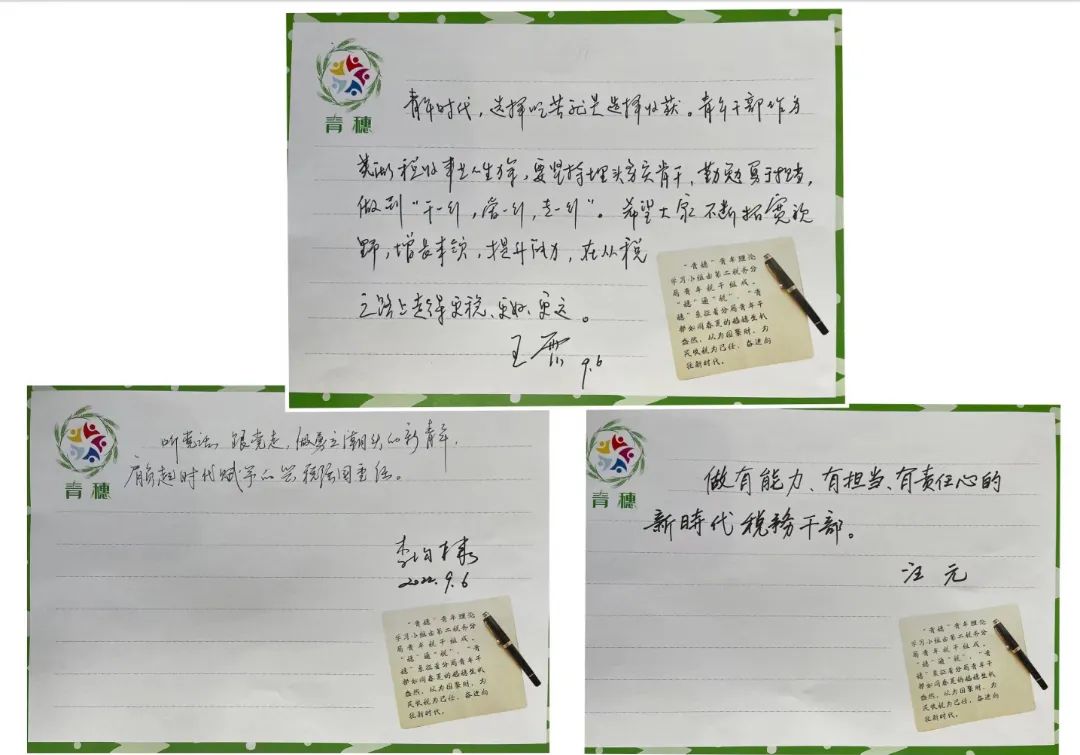 青穗
青年时代，选择吃苦就是选择收获。青年干部作为
税收事业生力军，要坚持埋头苦实肯干，勤勉勇于担当，
做到“干一行，爱一行，专一行”。希望大家不断拓宽视
野，增长本领，提升能力，在从税
之路上走得更稳、更好、更远。
王
9.6
“青穗”青年理论
学习小组由第二税务分
局青年税干组成。
“穗”通“税”，“青
穗”象征着分局青年干
部如同春夏的穗穗生机
盎然，从为国聚财、为
民收税为己任，奋进向
往新时代。
青穗
听党话、跟党走，做勇立潮头的新青年，
肩负起时代赋予的兴税强国重任。
李
2022.9.6
“青穗”青年理论
学习小组由第二税务分
局青年税干组成。
“穗”通“税”，“青
穗”象征着分局青年干
部如同春夏的穗穗生机
盎然，从为国聚财、为
民收税为己任，奋进向
往新时代。
青穗
做有能力、有担当、有责任心的
新時代税務干部。
汪元
“青穗”青年理论
学习小组由第二税务分
局青年税干组成。
“穗”通“税”，“青
穗”象征着分局青年干
部如同春夏的穗穗生机
盎然，从为国聚财、为
民收税为己任，奋进向
往新时代。